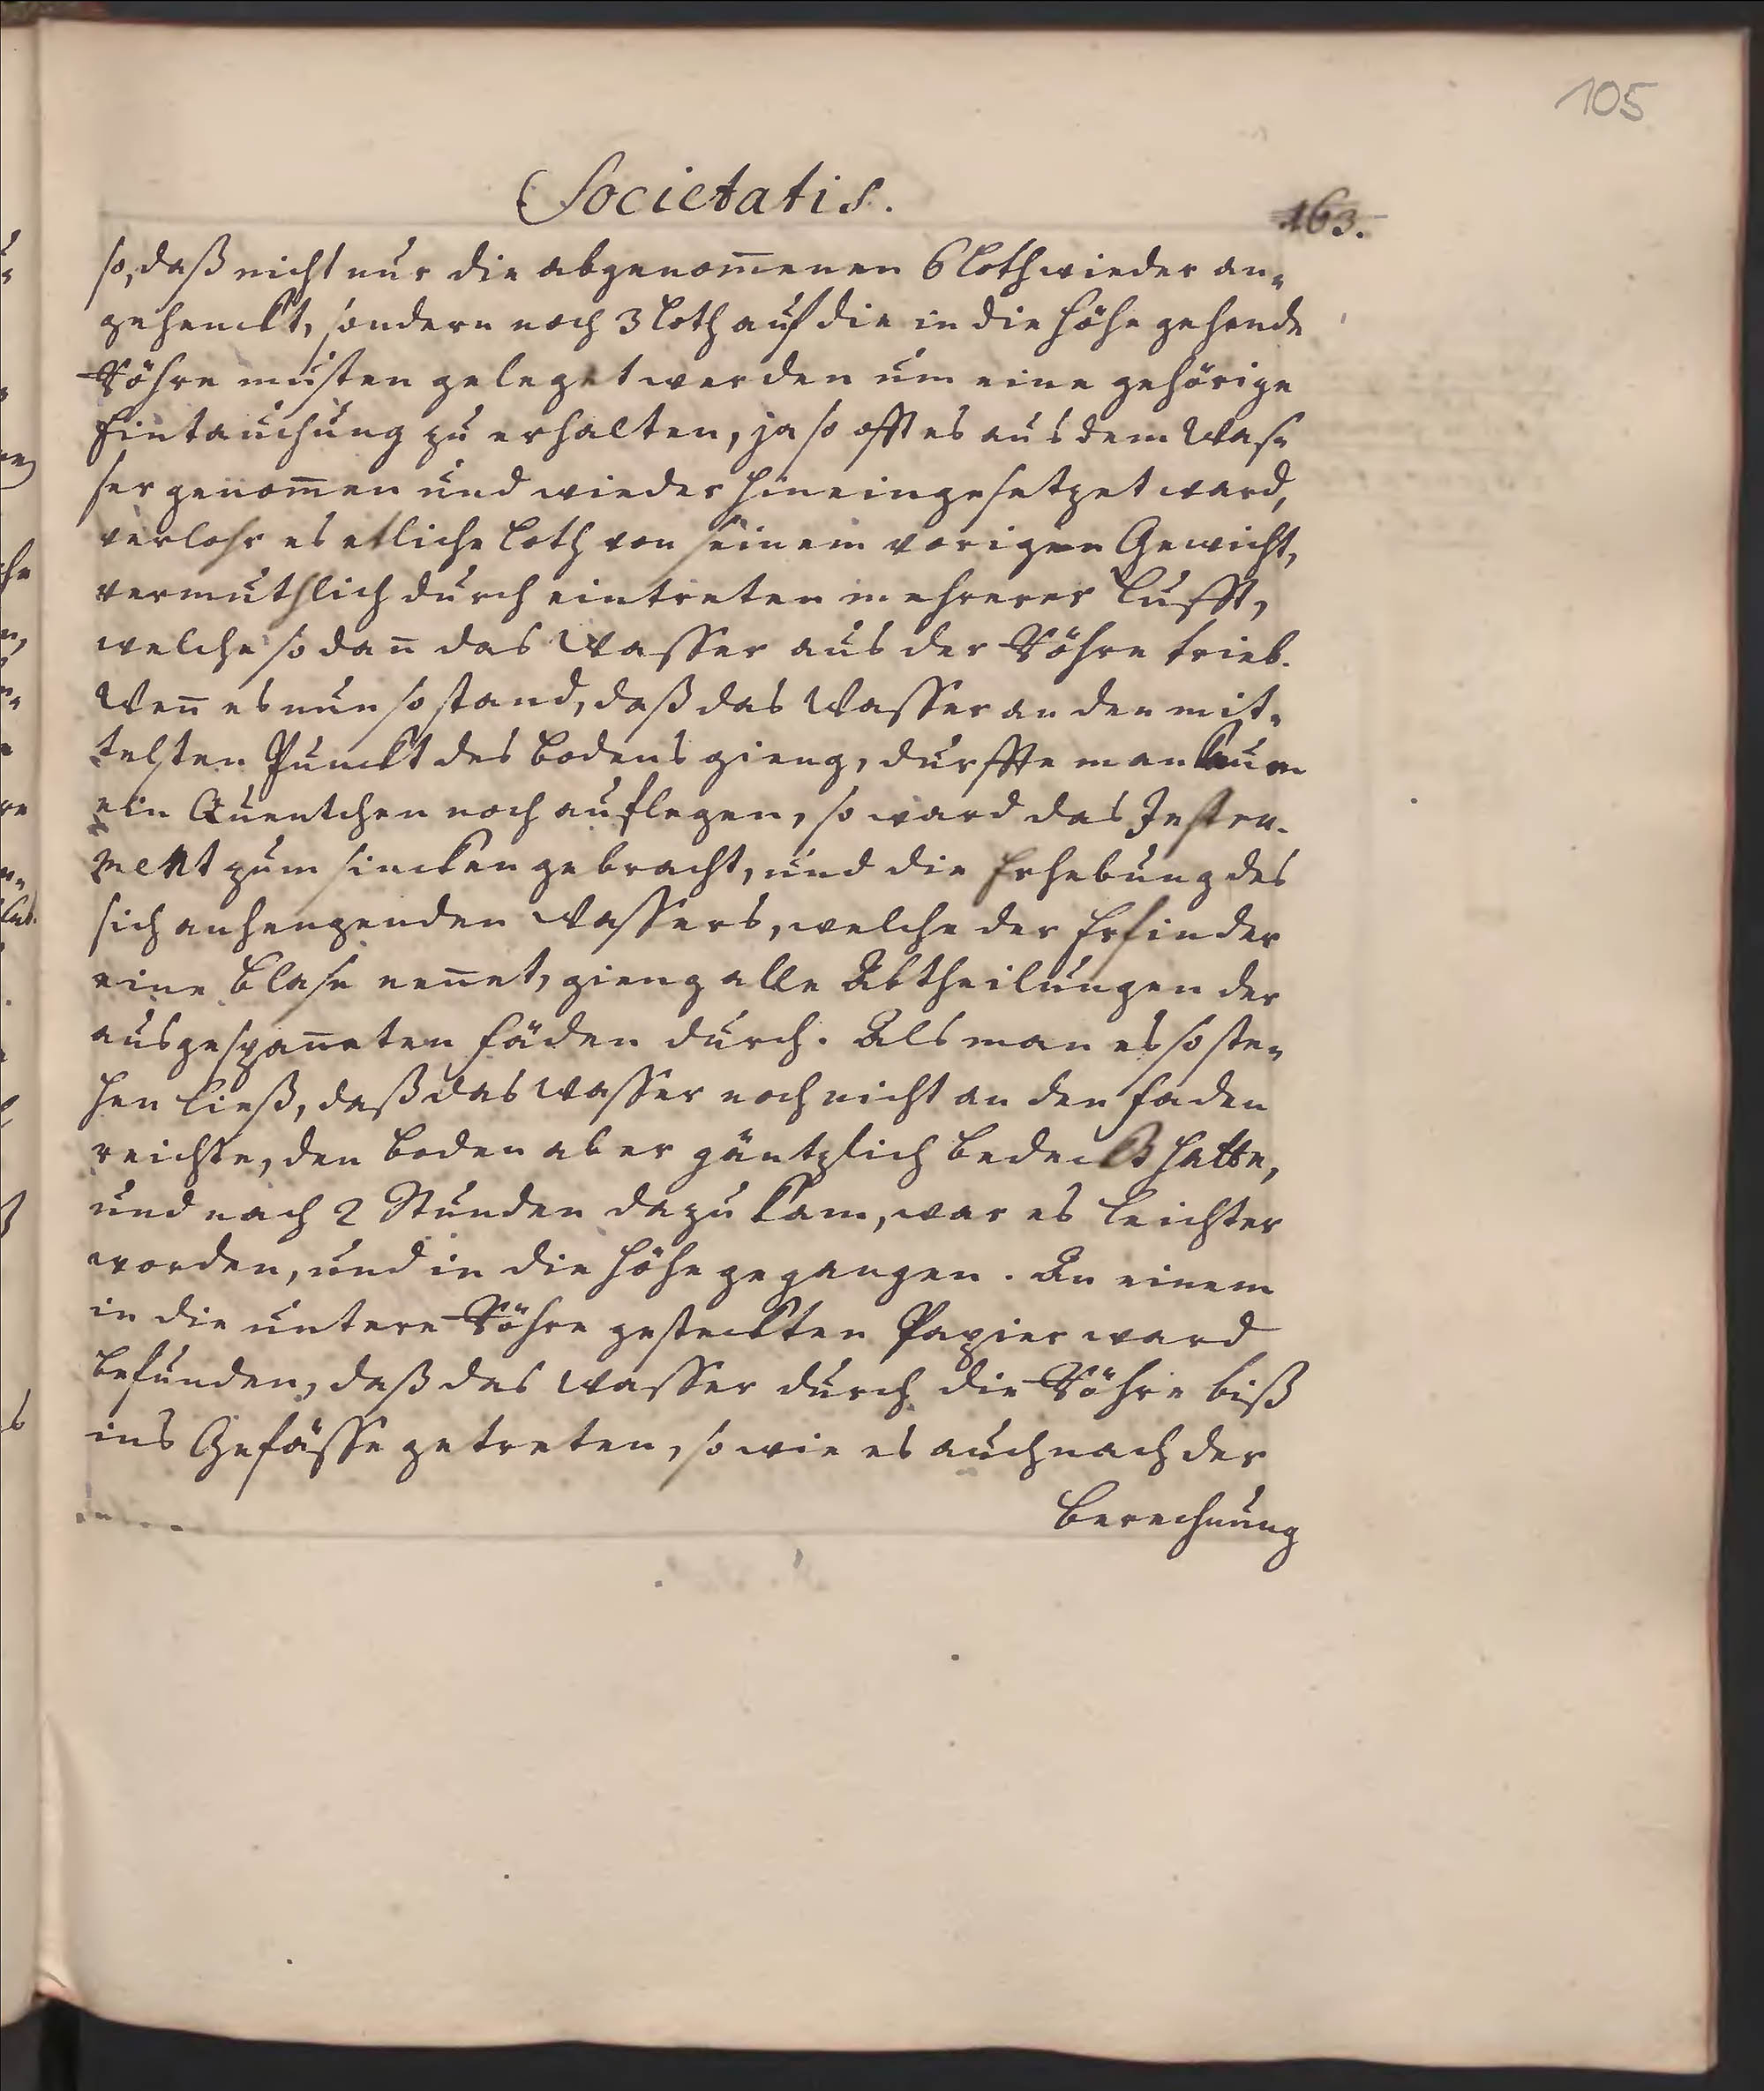 105
Societatis.
163.
so, daß nicht nur die abgenom̄enen 6 Loth wieder an-
gehenckt, sondern noch 3 Loth auf die in die Höhe gehende
Röhre musten geleget werden um eine gehörige
Eintauchung zu erhalten, ja so offt es aus dem Was-
ser genom̄en und wieder hineingesetzet ward,
verlohr es etliche Loth von seinem vorigen Gewicht,
vermuthlich durch eintreten mehrerer Lufft,
welche so dan̄ das Wasser aus der Röhre trieb.
Wen̄ es nun so stand, daß das Wasser an den mit-
telsten Punckt des Bodens gieng, durffte man kaum
ein Quentchen noch auflegen, so ward das Instru-
ment zum sincken gebracht, und die Erhebung des
sich anhengenden Wassers, welche der Erfinder
eine Blase nen̄et, gieng alle Abtheilungen der
ausgespan̄eten Fäden durch. Als man es so ste-
hen ließ, daß das Wasser noch nicht an den Faden
reichte, den Boden aber gäntzlich bedeckt hatte,
und nach 2 Stunden dazu kam, war es leichter
worden, und in die Höhe gegangen. An einem
in die untere Röhre gesteckten Papier ward
befunden, daß das Wasser durch die Röhre biß
ins Gefässe getreten, so wie es auch nach der
Berechnung